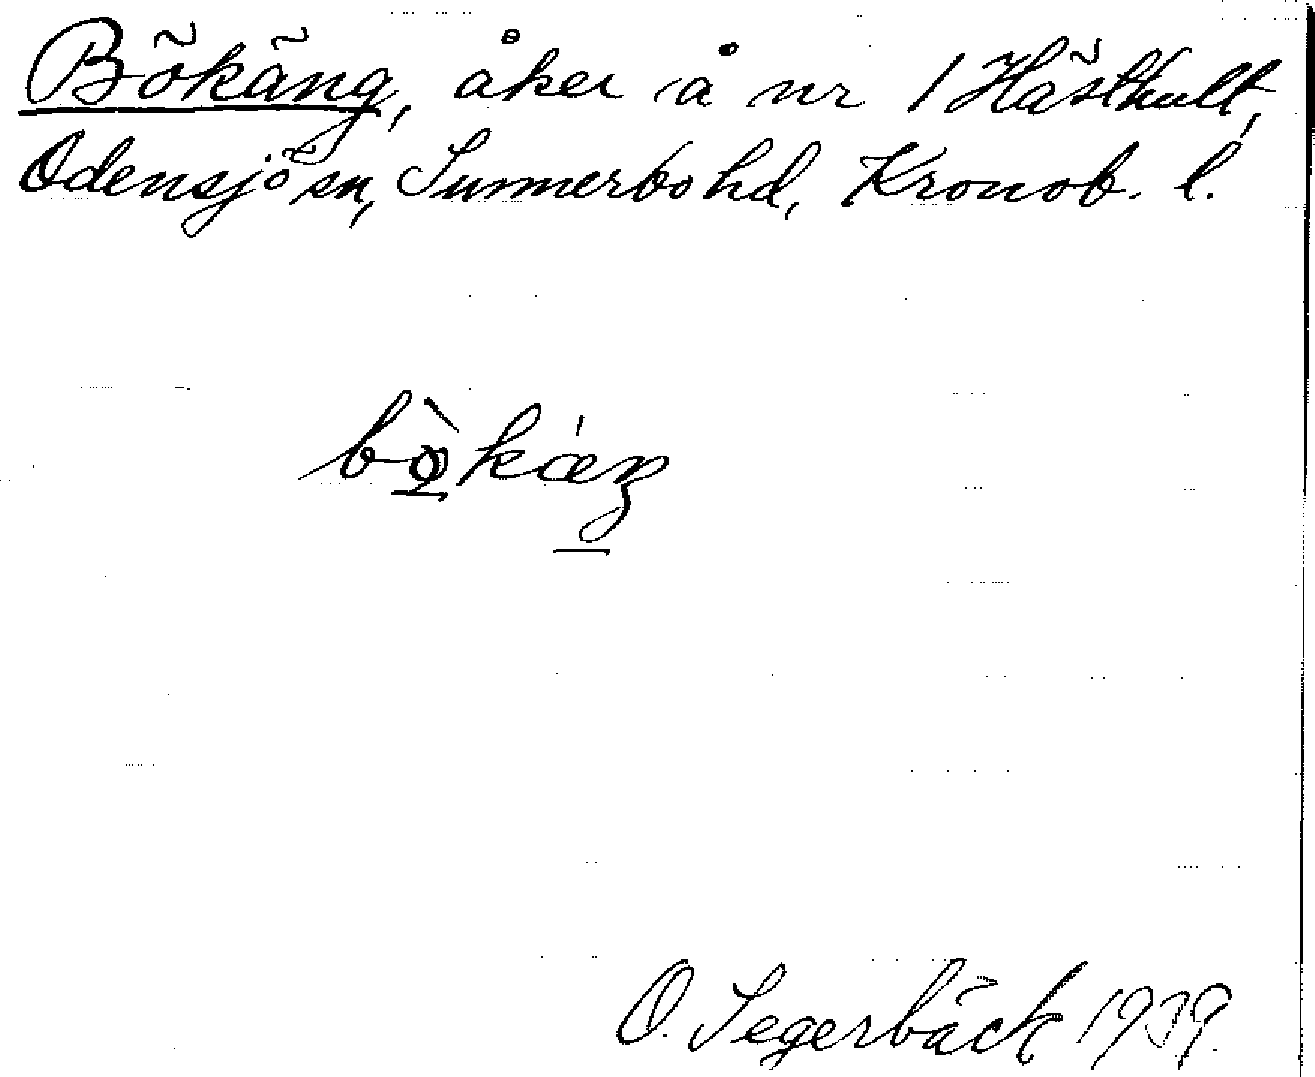 Bökäng, åker å nr 1 Hästhult,
Odensjö sn, Sunnerbo hd, Kronob. l.
bö̀káŋ
O. Segerbäck 1939.